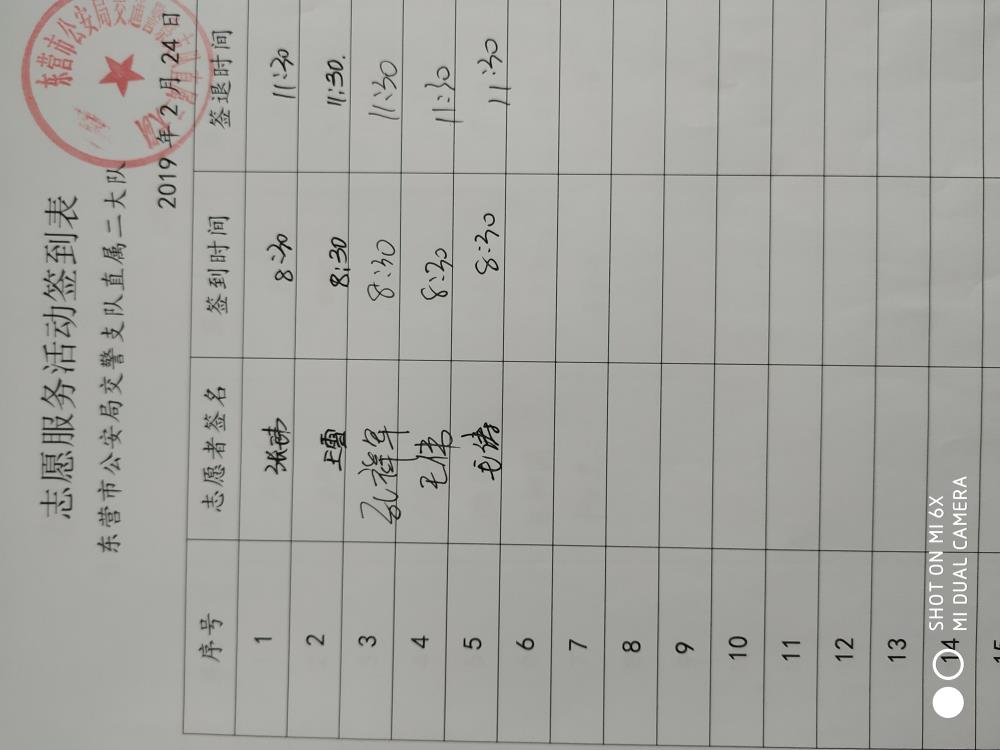 志愿服务活动签到表
东营市公安局交警支队直属二大队
2019 年 2 月 24 日
东营市公安局交通警察
序号 志愿者签名 签到时间 签退时间
1 8:30 11:30
2 8:30 11:30.
3 孔祥军 8:30 11:30
4 王伟 8:30 11:30
5 8:30 11:30
6
7
8
9
10
11
12
13
14
15
SHOT ON MI 6X
MI DUAL CAMERA